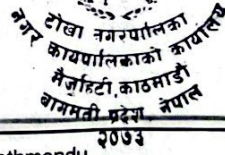 टोखा नगरपालिका
नगर कार्यपालिकाको कार्यालय
मैजुहिटी, काठमाडौं
बागमती प्रदेश, नेपाल
२०७३
athmandu